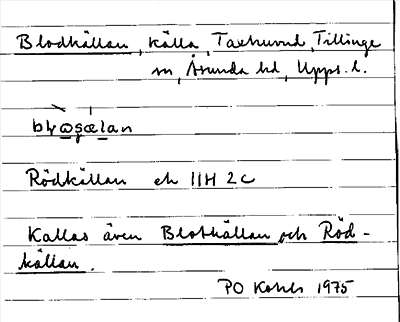 Blodkällan, källa, Taxhuvud, Tillinge
sn, Åsunda hd, Upps. l.
Rödkällan ek 11H 2c
Kallas även Blotkällan och Röd-
källan.
PO 1975